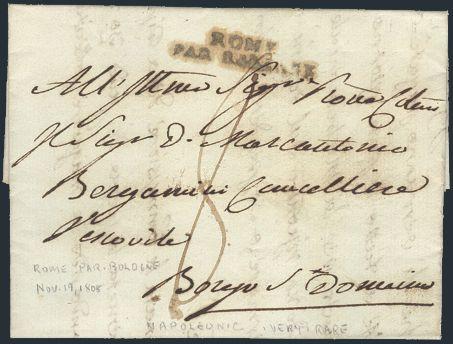 ROME
PAR BOLOGNE
All' Sigr
Il Sigr D. Marcantonio
Bergamini Cancelliere
Vescovile
Borgo S. Domnino
ROME PAR BOLOGNE
NOV. 19, 1808
NAPOLEONIC VERY RARE